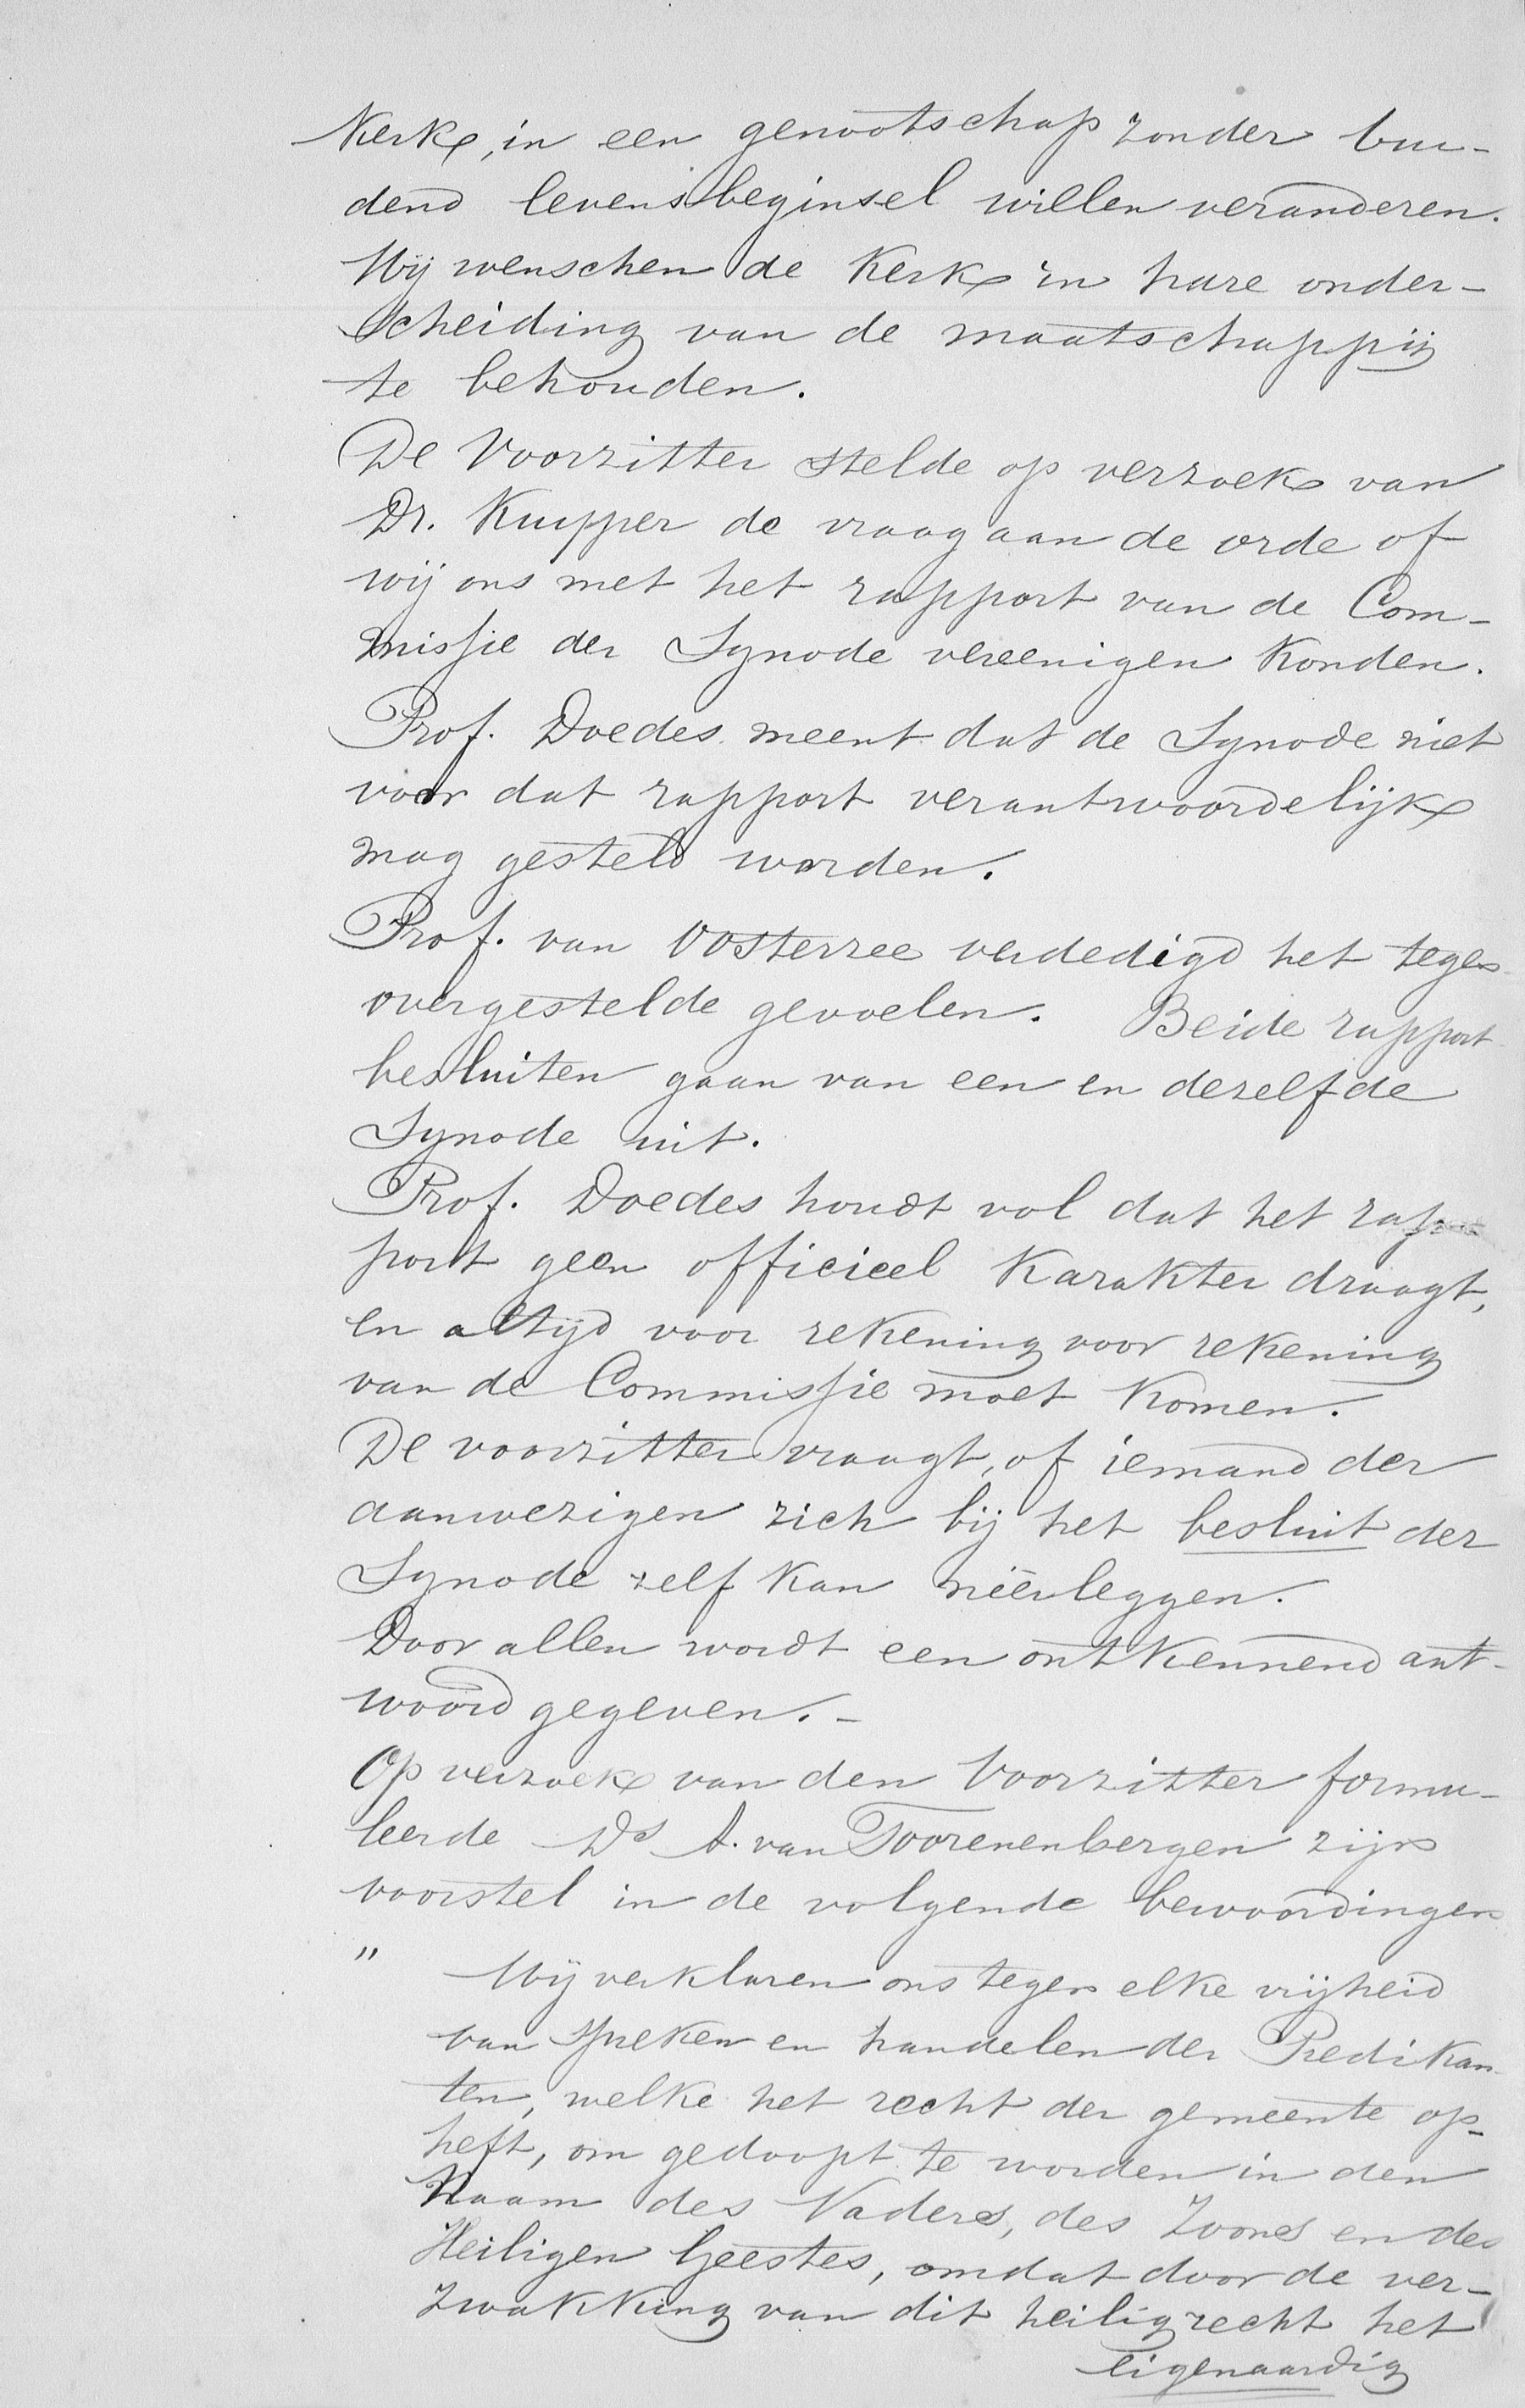 Kerk, in een genootschap zonder bin-
dend levensbeginsel willen veranderen.
Wij wenschen de Kerk in hare onder-
scheiding van de maatschappij
te behouden.
De Voorzitter stelde op verzoek van
Dr. Kuyper de vraag aan de orde of
wij ons met het rapport van de Com-
missie der Synode vereenigen konden.
Prof. Doedes meent dat de Synode niet
voor dat rapport verantwoordelijk
mag gesteld worden.
Prof. van Oosterzee verdedigd het tegen-
overgestelde gevoelen. Beide rapport
besluiten gaan van een en dezelfde
Synode uit.
Prof. Doedes houdt vol dat het rap-
port geen officieel karakter draagt,
en altijd voor rekening voor rekening
van de Commissie moet komen.
De voorzitter vraagt, of iemand der
aanwezigen zich bij het besluit der
Synode zelf kan nêerleggen.
Door allen wordt een ontkennend ant-
woord gegeven. -
Op verzoek van den Voorzitter formu-
leerde Ds A. van Toorenenbergen zijn
voorstel in de volgende bewoordingen
" Wij verklaren ons tegen elke vrijheid
van spreken en handelen der Predikan-
ten, welke het recht der gemeente op-
heft, om gedoopt te worden in den
Naam des Vaders, des Zoons en des
Heiligen Geestes, omdat door de ver-
zwakking van dit heilig recht het
eigenaardig